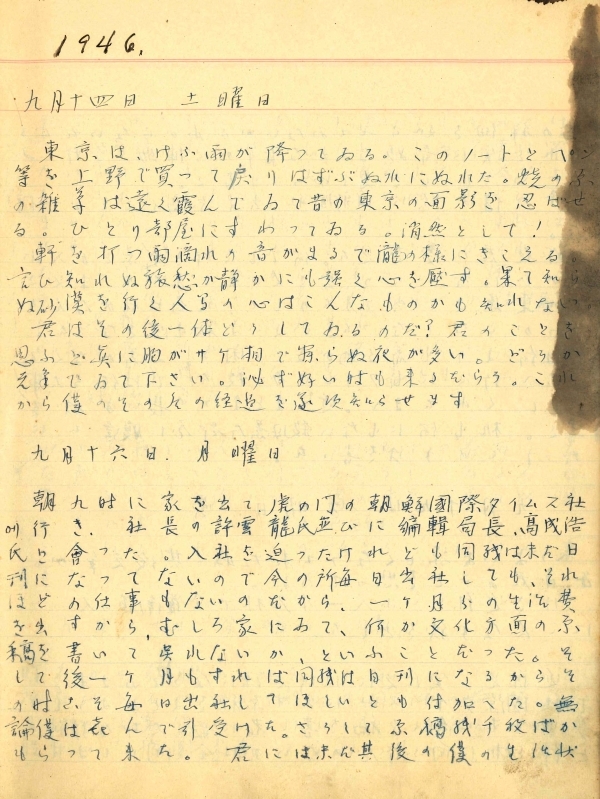 1946.
九月十四日 土曜日
東京は、けふ雨が降つてゐる。このノートとペン
等を上野で買って戻りはずぶぬれにぬれた。焼の原
の雑草は遠く霞んでゐて昔の東京の面影を忍ばせ
る。ひとり部屋にすわつてゐる。消然として!
軒を打つ雨滴れの音がまるで瀧の様にきこえる。
言ひ知れぬ旅愁が静かにも強く心を壓す。果て知ら
ぬ砂漠を行く人等の心はこんなものかも知れない。
君はその後一体どうしてゐるのだ?君のことを
思ふと真に胸がサケ相で寝らぬ夜が多い。どうか
元気でゐて下さい。必ず好い時も来るだらう。これ
から僕のその後の経過を逐次知らせます
九月十六日. 月曜日
朝九時に家を出て、虎の門の朝鮮國際タイムス社
行き、社長の許雲龍氏並びに編輯局長、高成浩
氏と會つた。入社を迫つたけれども同残は未だ日
刊になつてないので今の所毎日出社しても、それ
ほどの仕事もないのだから、一ヶ月分の生活費
を出すから、むしろ家にゐて、何か文化方面の原
稿を書いて呉れないか、といふことだつた。そ
して後一ヶ月もすれば同残は日刊になるから。そ
の時こそ毎日出社してほしいとも付加へた。無
論僕は喜んで引受けた。さうして原稿残千枚ばか
もらつて来た。君には未だ其後の僕の生活状